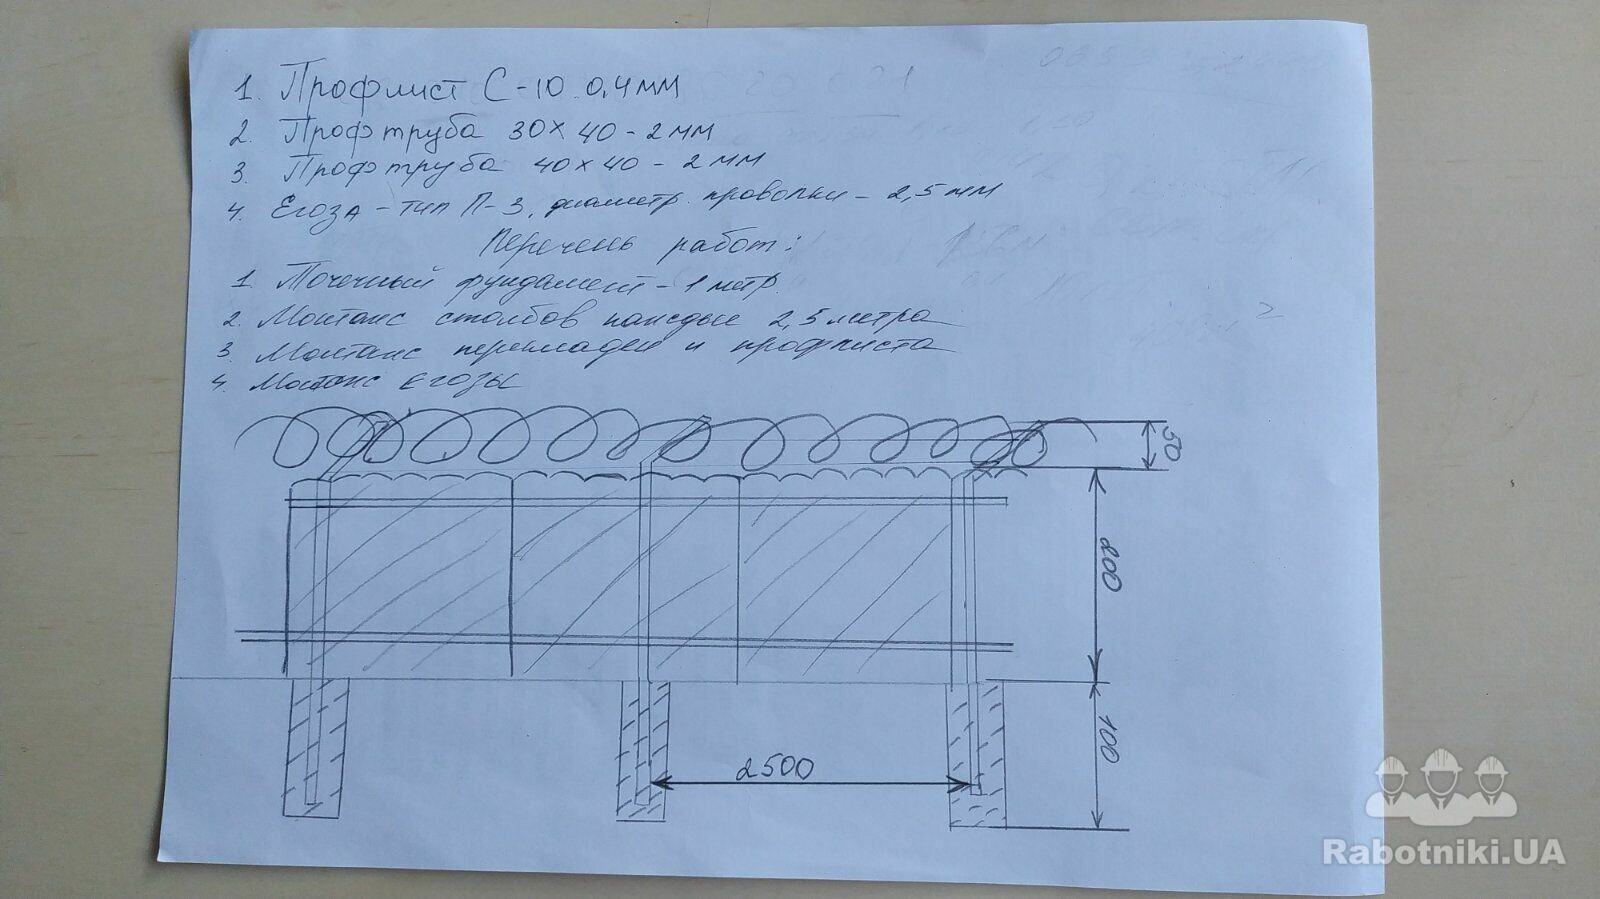 1. Профлист С-10 0,4мм
2. Профтруба 30х40-2мм
3. Профтруба 40х40-2мм
4. Егоза-тип П-3, диаметр. проволки-2,5мм
Перечень работ:
1. Точечный фундамент-1метр.
2. Монтаж столбов каждые 2,5метра
3. Монтаж перекладен и профлиста
4. Монтаж егозы
50
200
100
2500
Rabotniki.UA